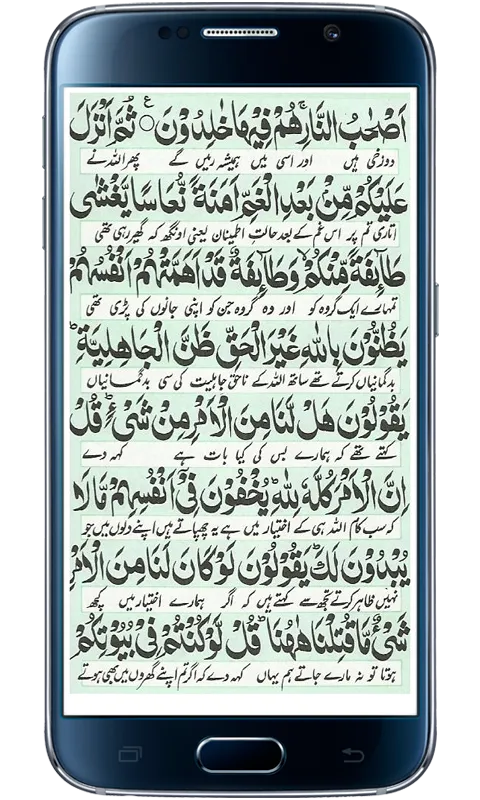 اَصْحٰبُ النَّارِ ۚ هُمْ فِیْهَا خٰلِدُوْنَ ○ ع ثُمَّ اَنْزَلَ
دوزخی ہیں اور اسی میں ہمیشہ رہیں گے پھر اللہ نے
عَلَیْكُمْ مِّنْۢ بَعْدِ الْغَمِّ اَمَنَةً نُّعَاسًا یَّغْشٰی
اتاری تم پر اس غم کے بعد حالتِ اطمینان یعنی اونگھ کہ گھیر رہی تھی
طَآىِٕفَةً مِّنْكُمْ ۙ وَطَآىِٕفَةٌ قَدْ اَهَمَّتْهُمْ اَنْفُسُهُمْ
تمہارے ایک گروہ کو اور وہ گروہ جن کو اپنی جانوں کی پڑی تھی
یَظُنُّوْنَ بِاللّٰهِ غَیْرَ الْحَقِّ ظَنَّ الْجَاهِلِیَّةِ ؕ
بدگمانیاں کرتے تھے ساتھ اللہ کے ناحق جاہلیت کی سی بدگمانیاں
یَقُوْلُوْنَ هَلْ لَّنَا مِنَ الْاَمْرِ مِنْ شَیْءٍ ؕ قُلْ
کہتے تھے کہ ہمارے بس کی کیا بات ہے کہہ دے
اِنَّ الْاَمْرَ كُلَّهٗ لِلّٰهِ ؕ یُخْفُوْنَ فِیْۤ اَنْفُسِهِمْ مَّا لَا
کہ سب کام اللہ ہی کے اختیار میں ہے یہ چھپاتے ہیں اپنے دلوں میں جو
یُبْدُوْنَ لَكَ ؕ یَقُوْلُوْنَ لَوْ كَانَ لَنَا مِنَ الْاَمْرِ
نہیں ظاہر کرتے تجھ سے کہتے ہیں کہ اگر ہمارے اختیار میں کچھ
شَیْءٌ مَّا قُتِلْنَا هٰهُنَا ؕ قُلْ لَّوْ كُنْتُمْ فِیْ بُیُوْتِكُمْ
ہوتا تو نہ مارے جاتے ہم یہاں کہہ دے کہ اگر تم اپنے گھروں میں بھی ہوتے